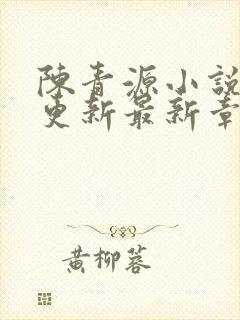 陳青源小說
更新最新章
黄柳蓉